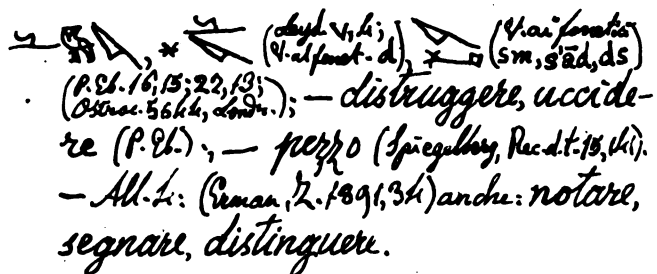 (Leyd V, 4;
V. ai fonet. d), (V. ai fonetici
sm, sād, ds)
(P. Eb. 16, 15; 22, 13;
Ostrac. 5644, Londr.); — distruggere, uccide-
re (P. Eb.); — pezzo (Spiegelberg, Rec. d. t. 15,
— All. 4: (Erman, Z. 1891, 34) anche: notare,
segnare, distinguere.